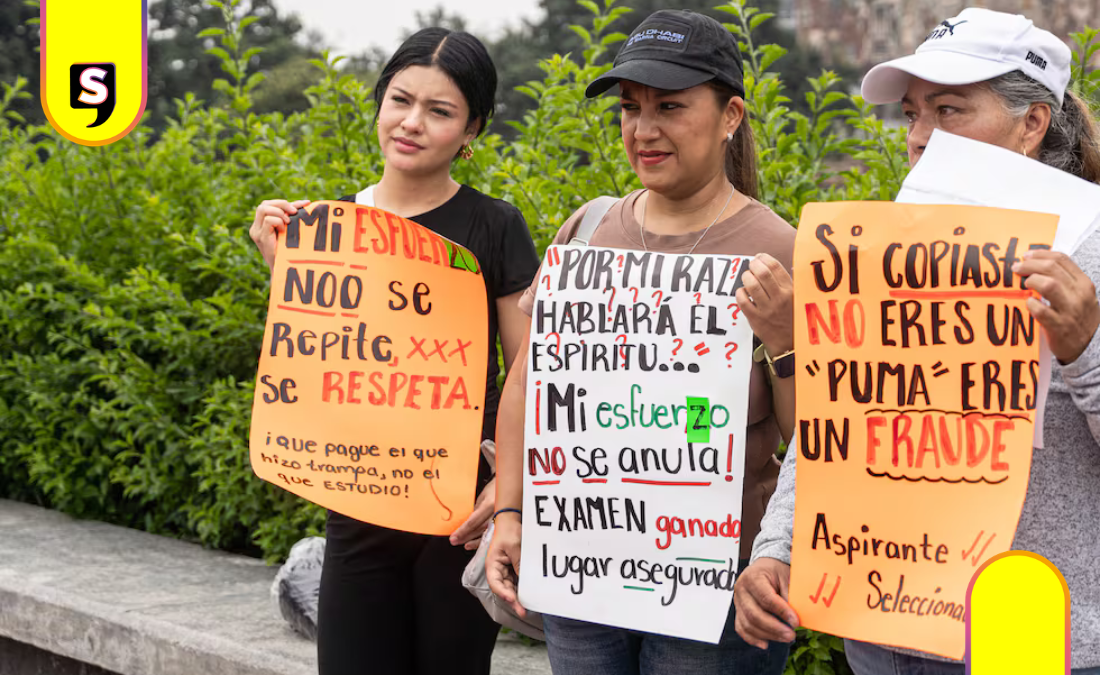 S
Mi ESFUERZO
NO se
Repite, XXX
se RESPETA.
¡QUE pague el que
hizo trampa, no el
que ESTUDIO!
ABU DHABI
"POR MI RAZA
HABLARÁ EL
ESPÍRITU...
¡Mi esfuerzo
NO se anula!
EXAMEN ganado
lugar asegurado
PUMA
PUMA
Si COPIASTE
NO ERES UN
"PUMA" ERES
UN FRAUDE
Aspirante
Selecciona